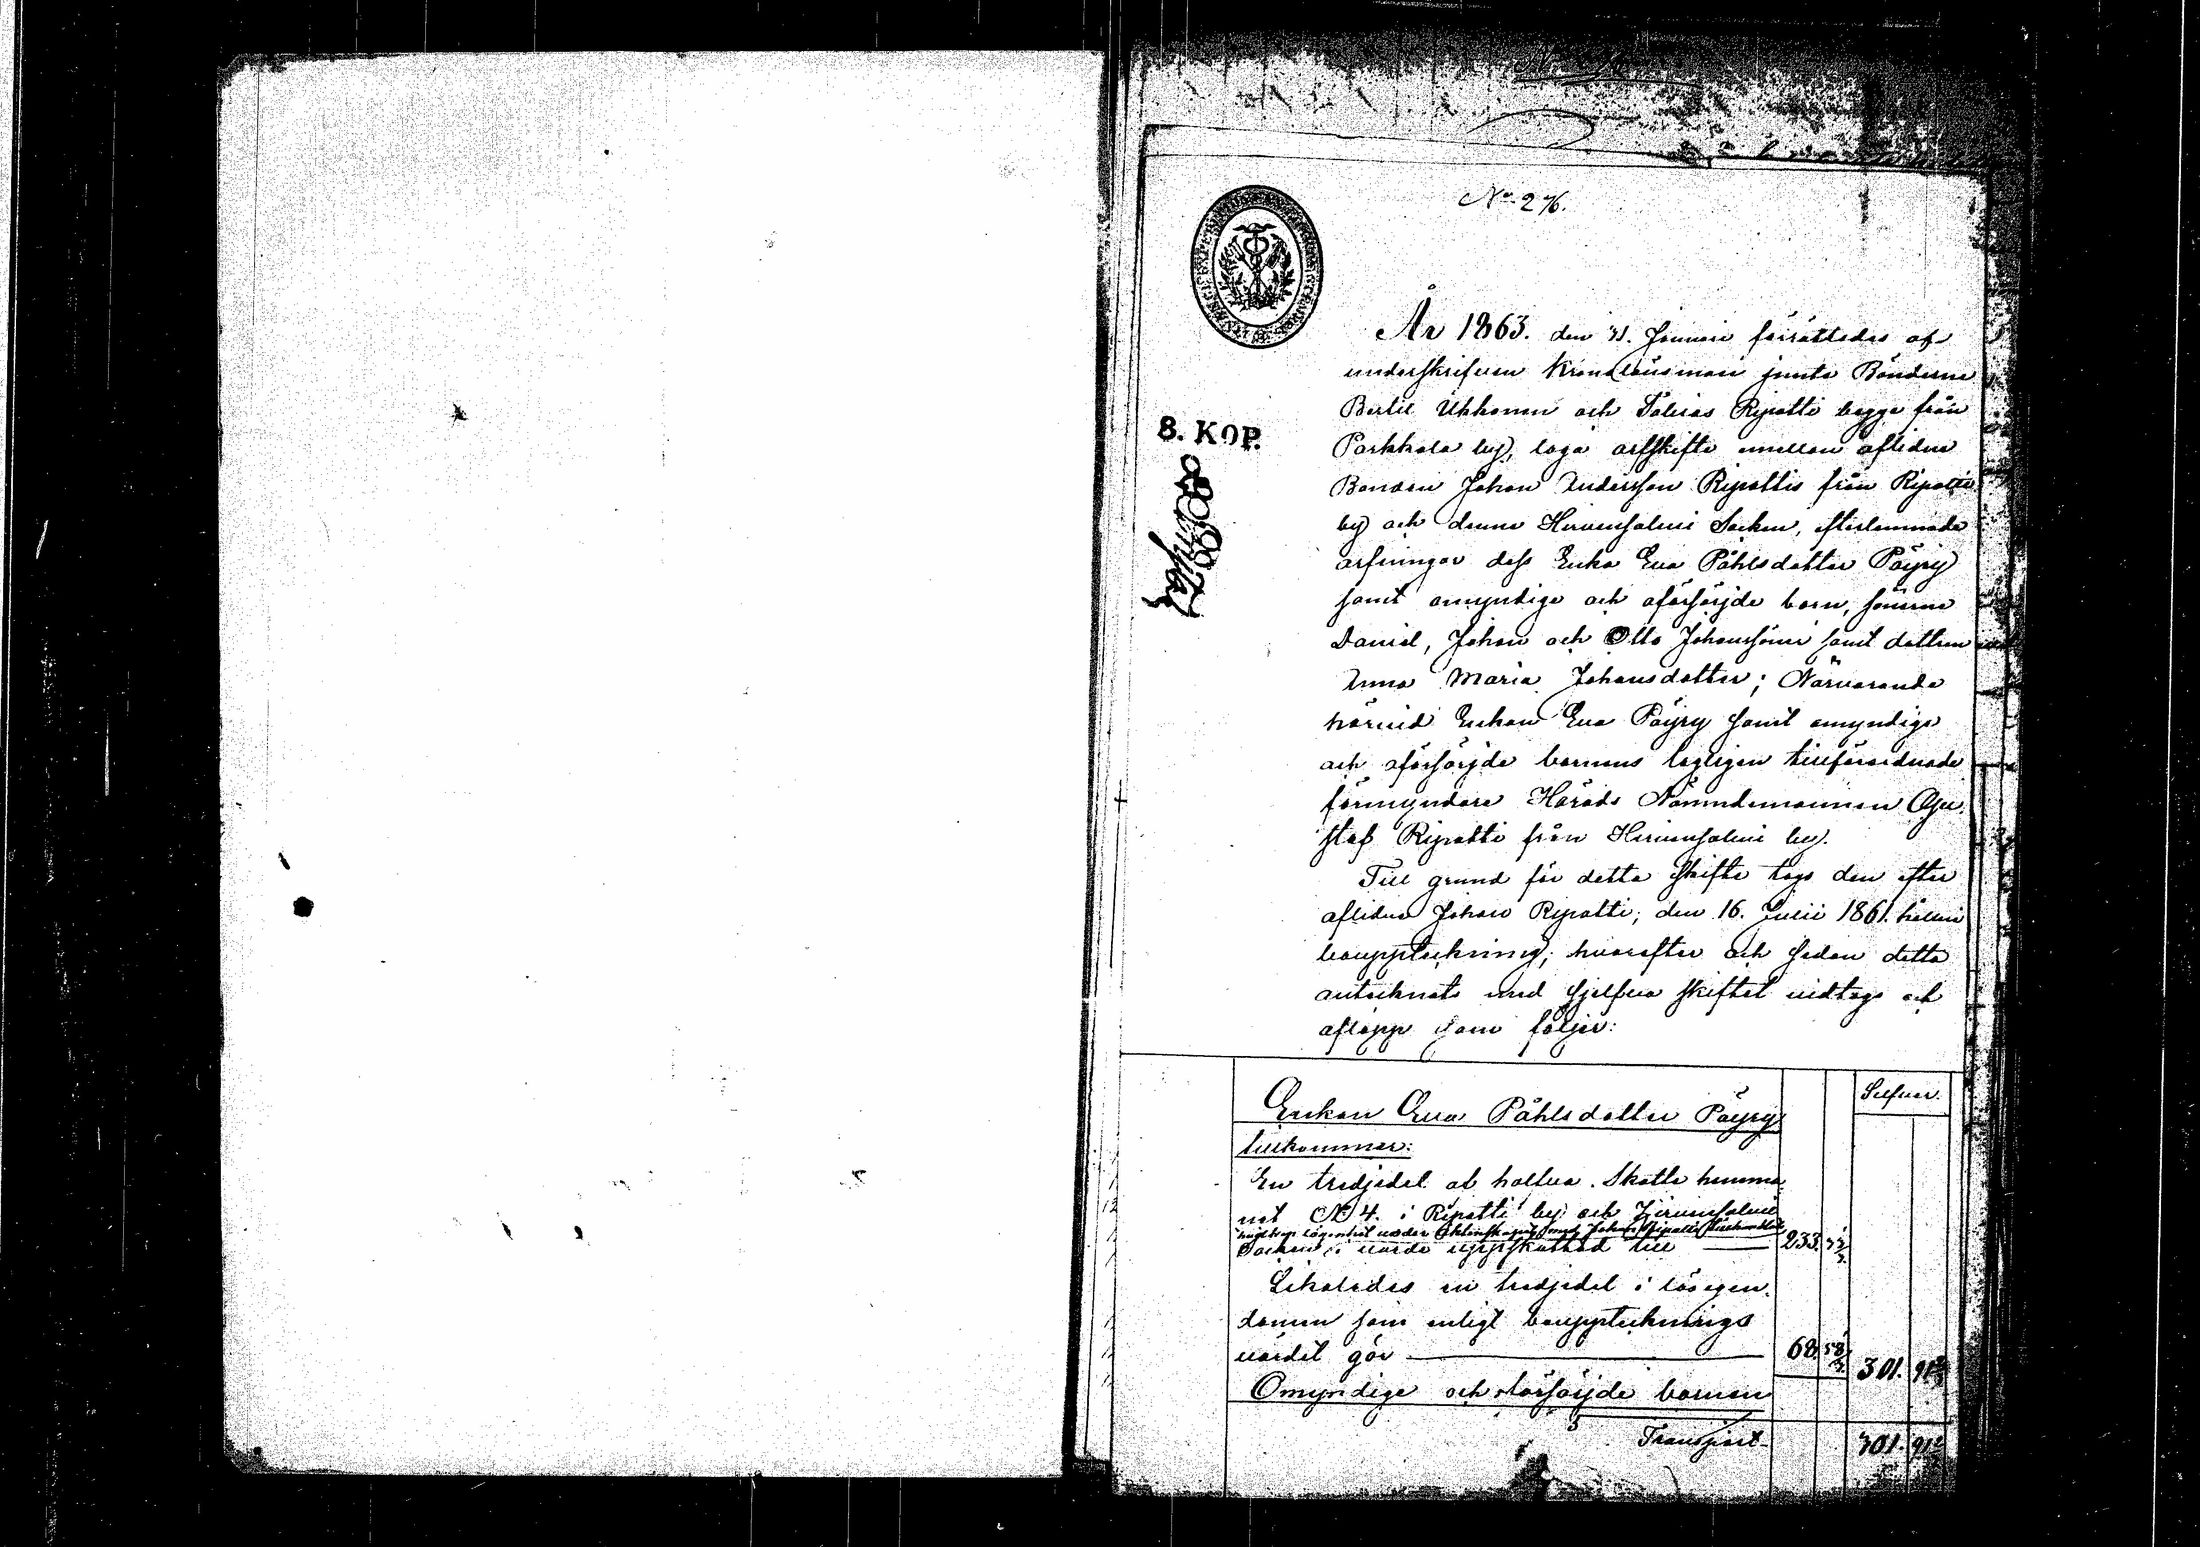 No 276.
År 1863. den 31. Januari förrättades af
underskrifven Kronolänsman jemte Bönderne
Bertil Ukkonen och Tobias Ripatti begge från
Parkkala by, laga arfskifte emellan aflidne
Bonden Johan Andersson Ripattis från Ripatti
by och denne Hirvensalmi Socken, efterlemnade
arfvingar dess Enka Eva Påhlsdotter Pöyry
samt omyndige och oförsörjde barn, sönerne
Daniel, Johan och Otto Johanssöner samt dottren
Anna Maria Johansdotter; Närvarande
härvid Enkan Eva Pöyry samt omyndige
och oförsörjde barnens lagligen tillförordnade
förmyndare Härads Nämndemannen Gu-
staf Ripatti från Hirvensalmi by.
Till grund för detta skifte togs den efter
aflidne Johan Ripatti, den 16. Julii 1861. hållne
bouppteckning, hvarefter och sedan detta
antecknats med sjelfva skiftet vidtogs och
aflopp som följer:
8. KOP.
Silfver.
Enkan Eva Påhlsdotter Pöyry
tillkommer:
En tredjedel af halfva Skatte hemma-
net No 4. i Ripatti by och Hirvensalmi
Socken, i värde uppskattad till 233.
Likaledes en tredjedel i lösegen-
domen som enligt bouppteckings
värdet gör 68 301. 91
Omyndige och oförsörjde barnen
Transport 301. 91